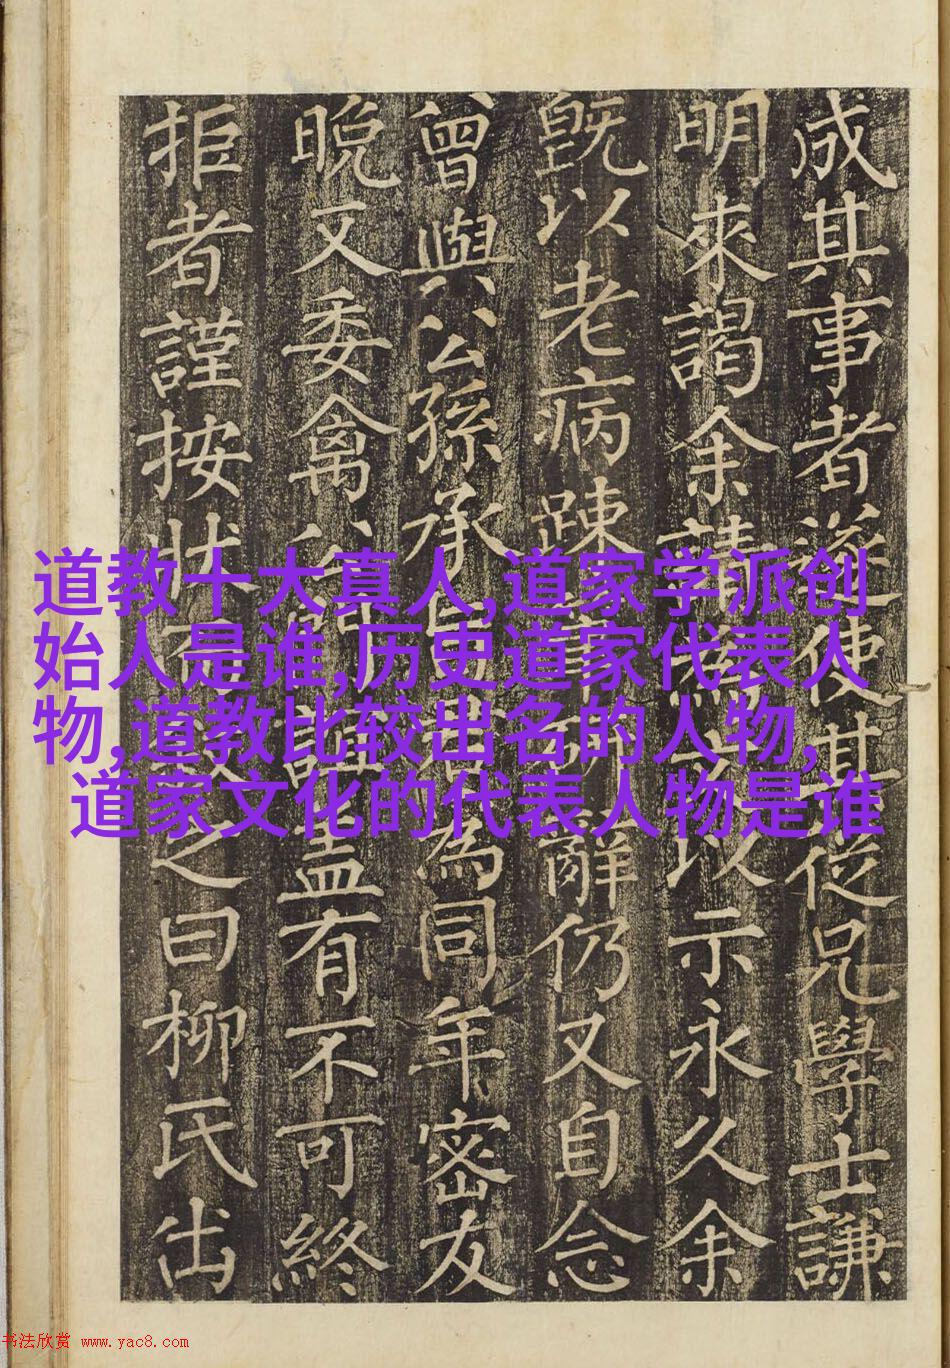 成其事者遂使其從兄學士謙
明來謁余請以示永久余
既以老病踈辭仍又自念
曾與公孫承為同年密友
晚又委禽公誼盖有不可終
拒者謹按狀之曰柳氏出
道教十大真人,道家学派创
始人是谁,历史道家代表人
物,道教比较出名的人物,
道家文化的代表人物是谁
书法欣赏 www.yac8.com